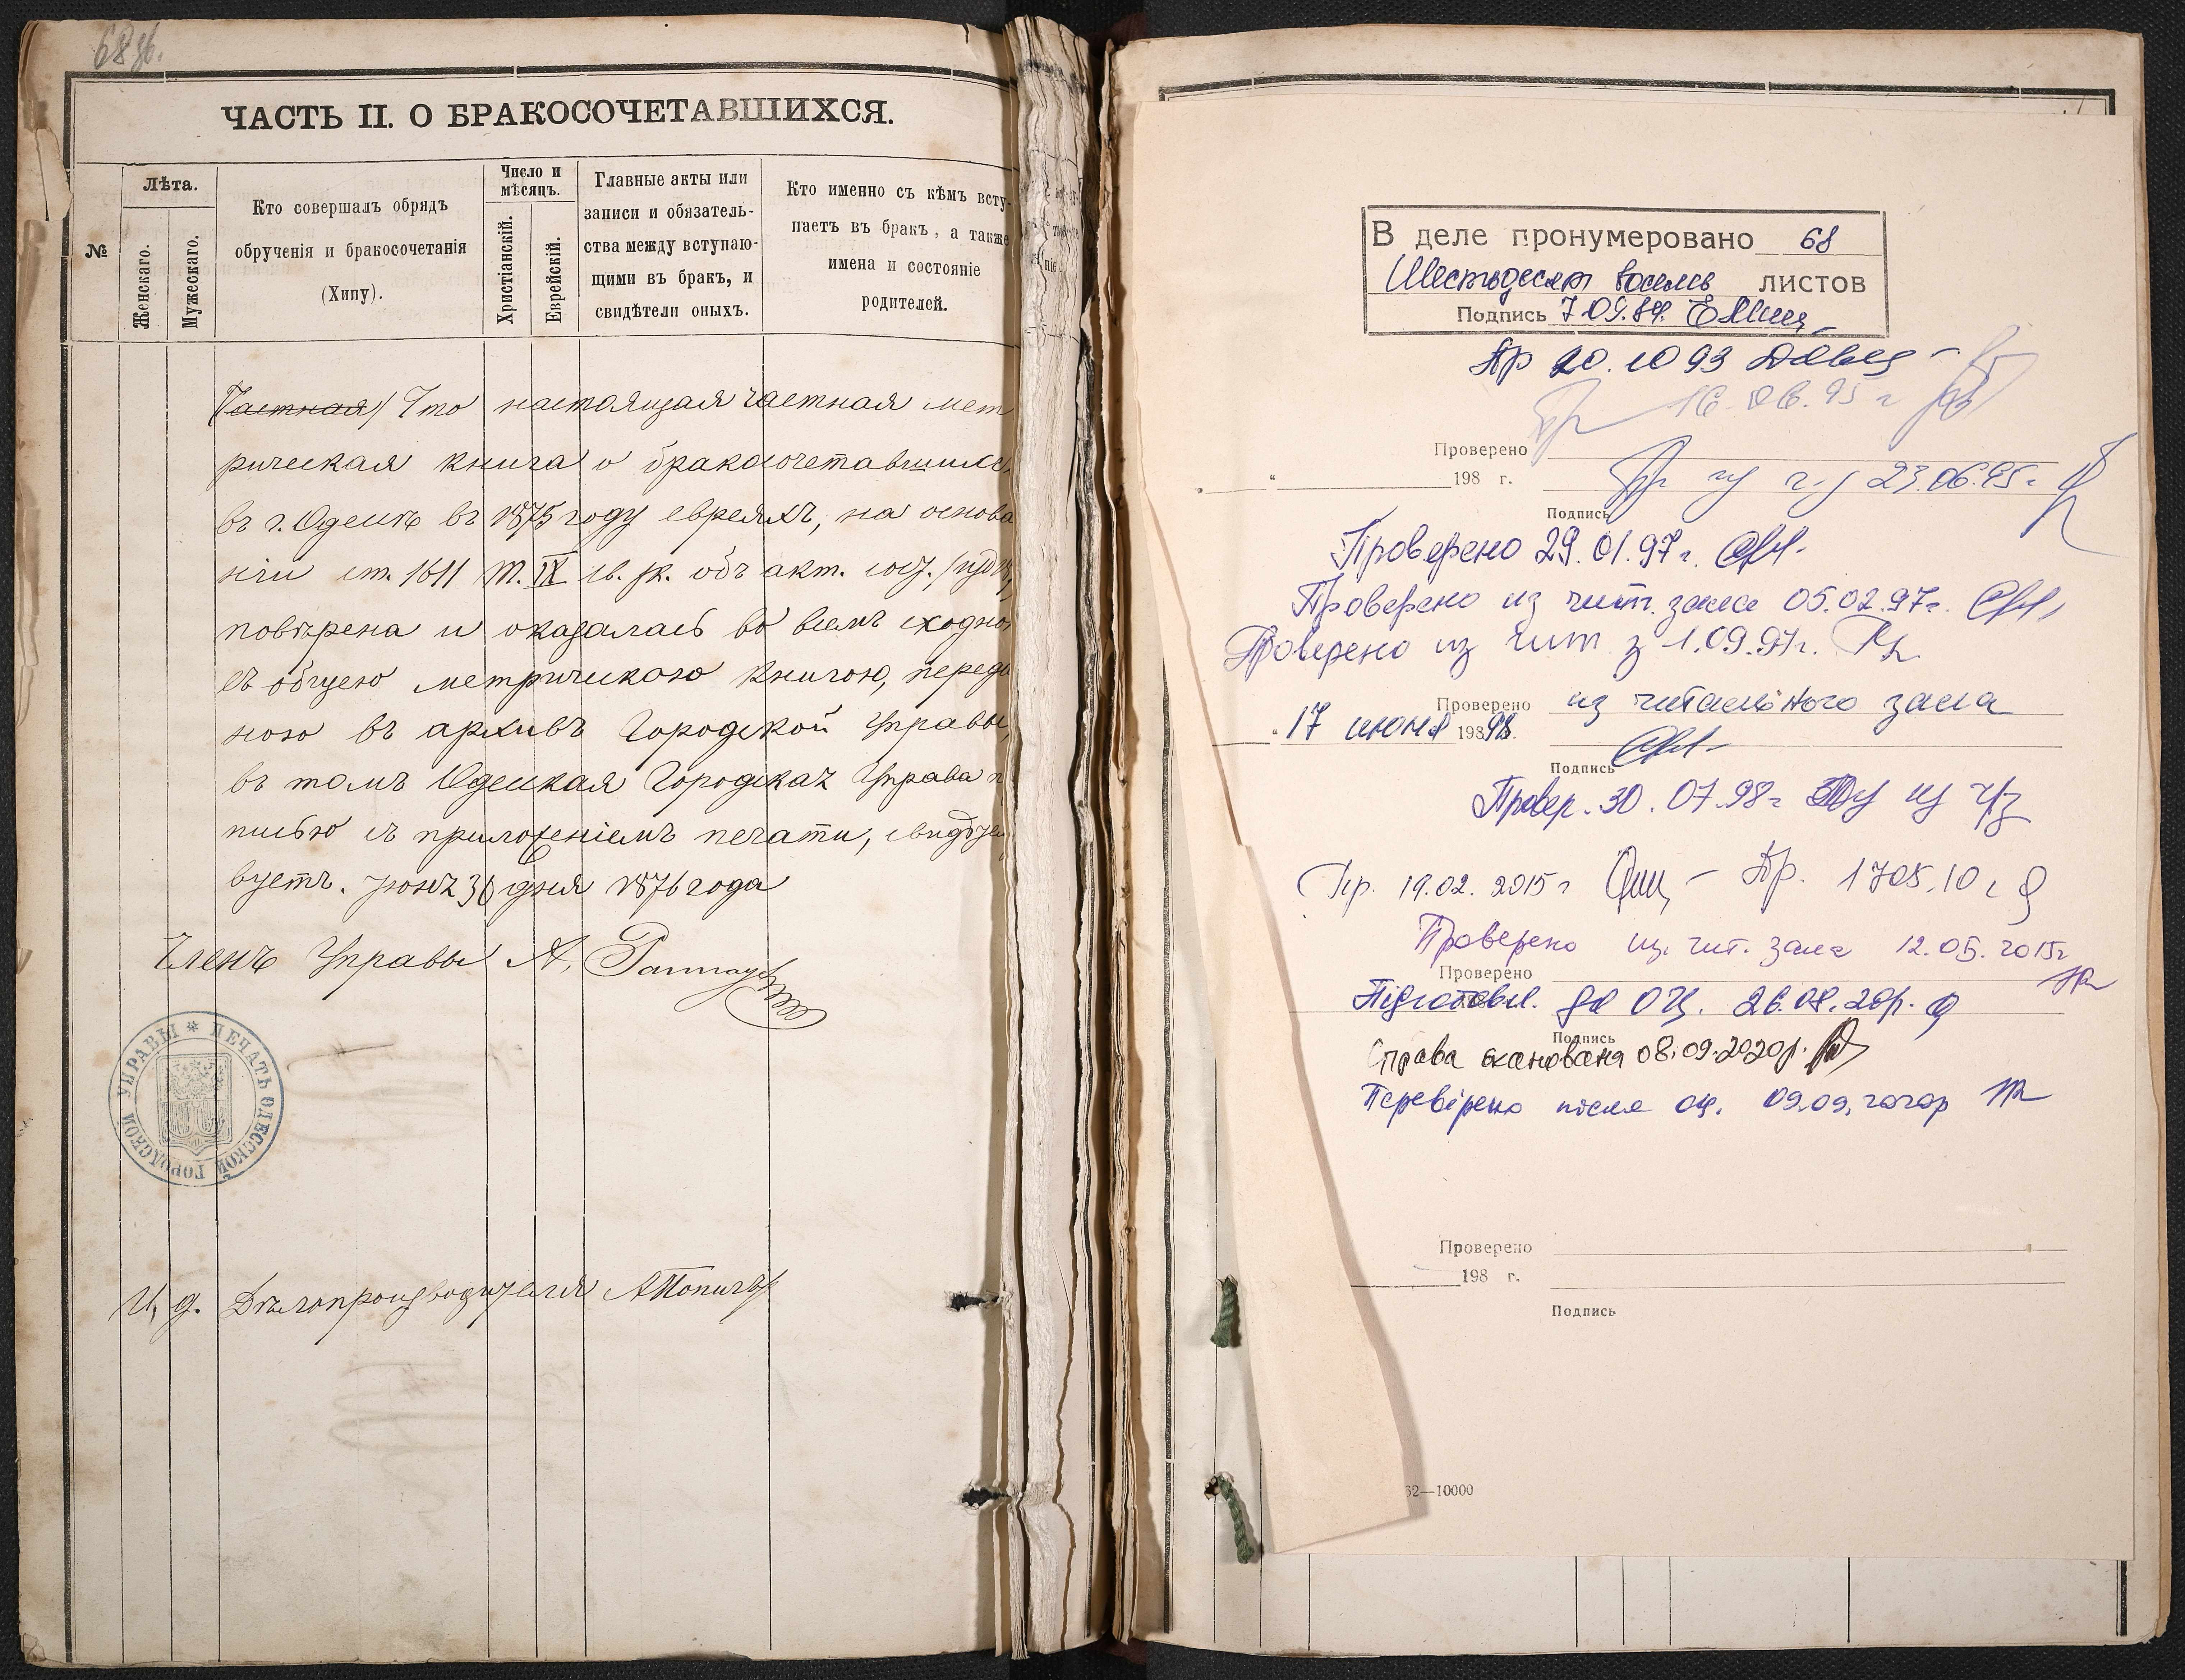 68 об.
ЧАСТЬ II. О БРАКОСОЧЕТАВШИХСЯ.
№
Лѣта.
Женскаго.
Мужескаго.
Кто совершалъ обрядъ
обрученія и бракосочетанія
(Хипу).
Число и
мѣсяцъ.
Христіанскій.
Еврейскій.
Главные акты или
записи и обязатель-
ства между вступаю-
щими въ бракъ, и
свидѣтели оныхъ.
Кто именно съ кѣмъ всту-
паетъ въ бракъ, а также
имена и состояніе
родителей.
(Частная) Что настоящая частная мет
рическая книга о бракосочетавшихся
въ г. Одессѣ въ 1875 году евреяхъ, на основа
ніи ст. 1611 т. IX св. зк. объ акт. сост.
повѣрена и оказалась во всемъ сходно
съ общею метрическою книгою, переда
ною въ архивъ Городской Управы,
въ томъ Одесская Городская Управа п
писью съ приложеніемъ печати, свидѣтел
вуетъ. Іюня 30 дня 1876 года
Членъ Управы А.
ПЕЧАТЬ ОДЕССКОЙ ГОРОДСКОЙ УПРАВЫ
И. д. Дѣлопроизводителя
В деле пронумеровано 68
Шестьдесят восемь листов
Подпись 7.09.89.
Пр 20.10 93
Пр 16.06.95 г
Проверено
198 г.
Пр из ч.з 23.06.95 г.
Подпись
Проверено 29.01.97 г.
Проверено из чит. зала 05.02.97 г.
Проверено из чит з 1.09.97 г.
Проверено из читального зала
" 17 июня 198 98.
Подпись
Провер. 30.07.98 г из ч/з
Пр. 19.02. 2015 г Пр.
Проверено из. чит. зала 12.05.2015 г
Проверено
Підготовл. до ОЦ. 26.08.20р.
Подпись
Справа сканована 08.09.2020р.
Перевірено після оц. 09.09.2020р
Проверено
198 г.
Подпись
62—10000